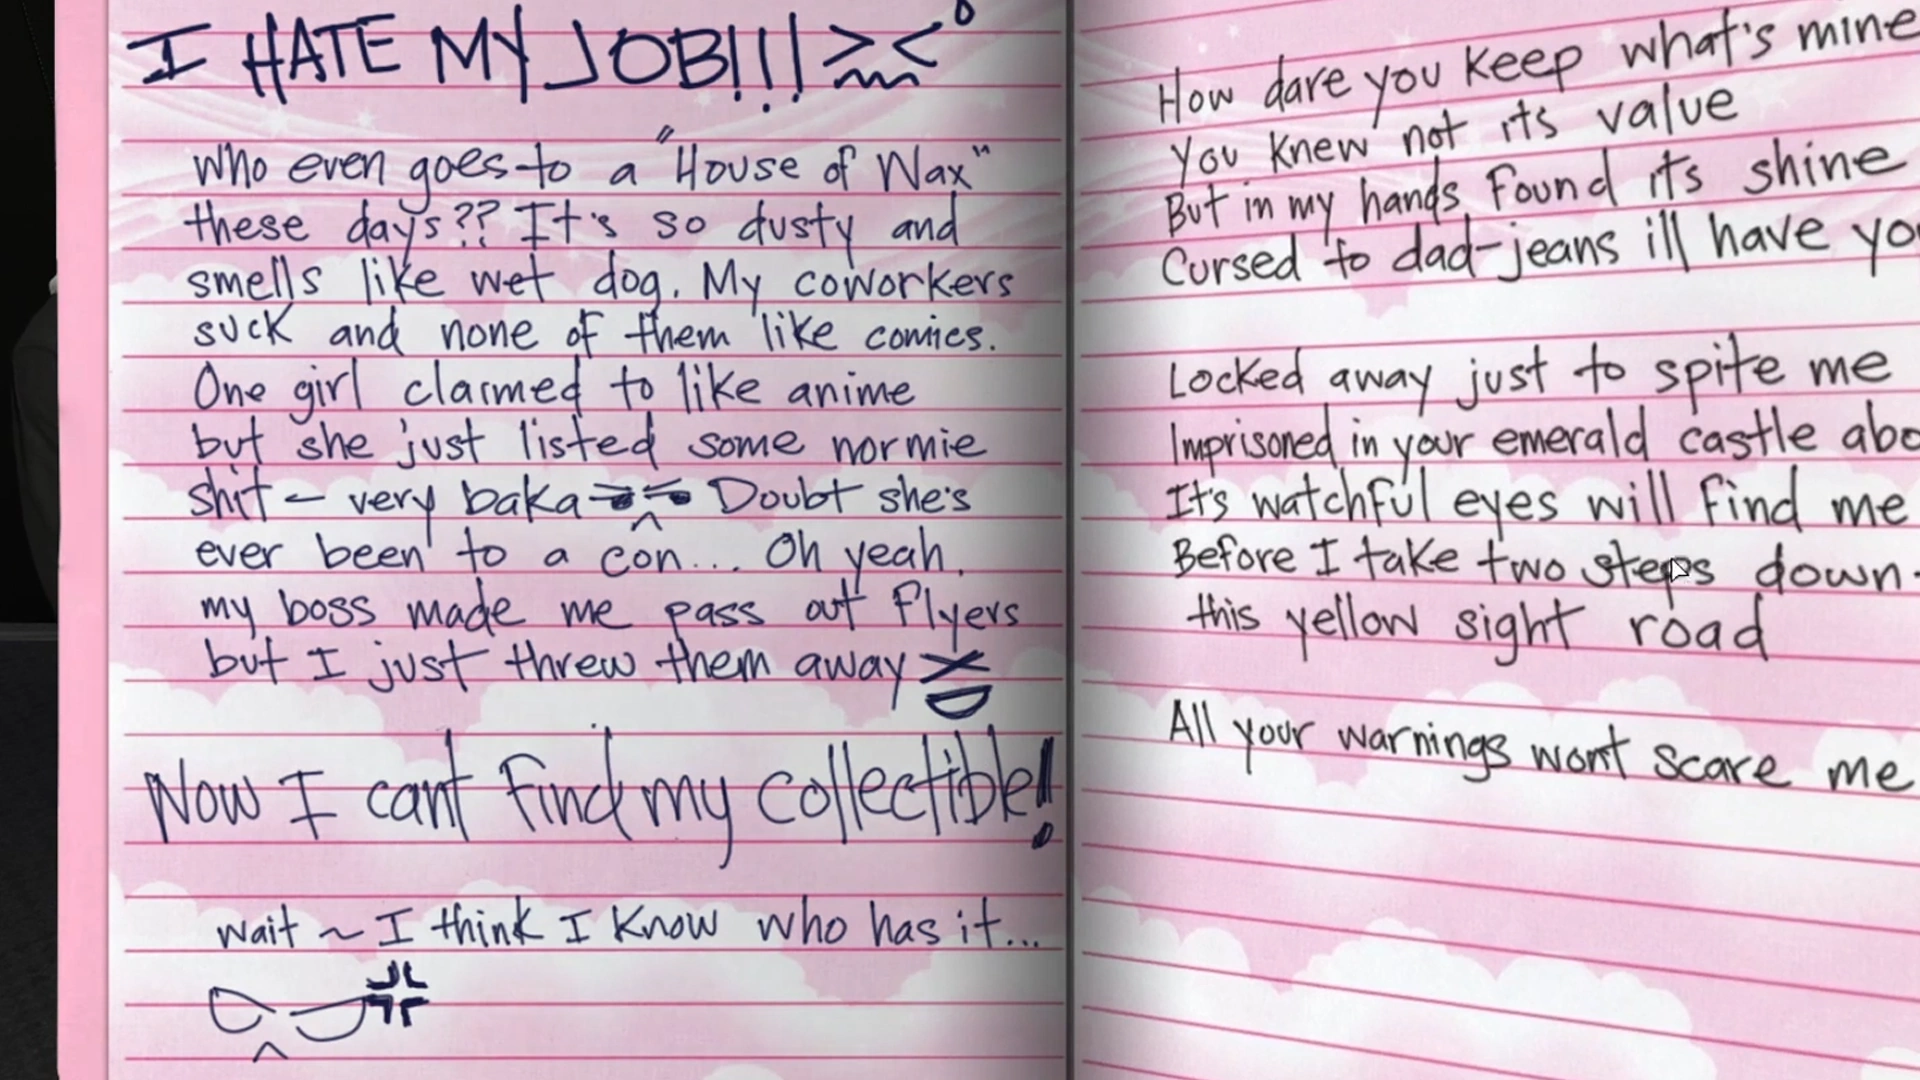 I HATE MY JOB!!! ><
who even goes to a "House of Wax"
these days?? It's so dusty and
smells like wet dog. My coworkers
suck and none of them like comics.
One girl claimed to like anime
but she just listed some normie
shit - very baka Doubt she's
ever been to a con... Oh yeah,
my boss made me pass out flyers
but I just threw them away
Now I can't find my collectible!
wait ~ I think I know who has it...
How dare you keep what's mine
You knew not its value
But in my hands found its shine
Cursed to dad-jeans ill have yo
Locked away just to spite me
Imprisoned in your emerald castle abo
It's watchful eyes will find me
Before I take two steps down
this yellow sight road
All your warnings wont scare me